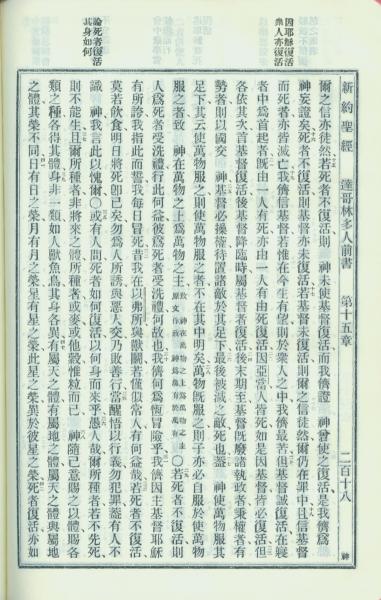 新約聖經 達哥林多人前書 第十五章 二百十八 神
因耶穌復活
衆人亦復活
爾之信亦徒然若死者不復活則 神未使基督復活而我儕證 神曾使之復活是我儕爲
神妄證矣死者不復活則基督亦未復活若基督未復活則爾之信徒然爾仍在罪中且信基督
而死者亦皆滅亡我儕信基督若惟在今生有望則於衆人之中我儕最苦但基督誠復活在寢
者中爲首起者既由一人有死亦由一人有由死復活因亞當人皆死如是因基督皆必復活但
各依其次首基督復活後基督降臨時屬基督者復活後末期至基督既廢諸執政者秉權者有
勢者則以國交 神基督必操權待置諸敵於其足下最後被滅之敵死也蓋 神使萬物服其
足下其云使萬物服之則使萬物服之者不在其中明矣萬物既服之則子亦必自服於使萬物
服之者致 神在萬物之上爲萬物之主 致神在萬物之上爲萬物之主原文作致神爲萬有於萬有 ○若死者不復活則
人爲死者受洗禮行此何益彼爲死者受洗禮何故也我儕何爲恆冒險乎我儕因主基督耶穌
有所誇我指此而誓我每日冒死昔我在以弗所與獸鬬若僅似常人有何益哉若死者不復活
莫若飲食明日將死卽已矣勿爲人所誘與惡人交乃敗善行當醒悟以行義勿犯罪蓋有人不
論死者復活
其身如何
識 神我言此以愧爾○或有人問死者如何復活以何身而來乎愚人哉爾所種者若不先死
則不能生且爾所種者非將來之體所種者或麥或他穀惟粒而已 神隨己意賜之以體賜各
類之種各得其體身非一類如人獸魚鳥其身各異有屬天之體有屬地之體屬天之體與屬地
之體其榮不同日有日之榮月有月之榮星有星之榮此星之榮異於彼星之榮死者復活亦如